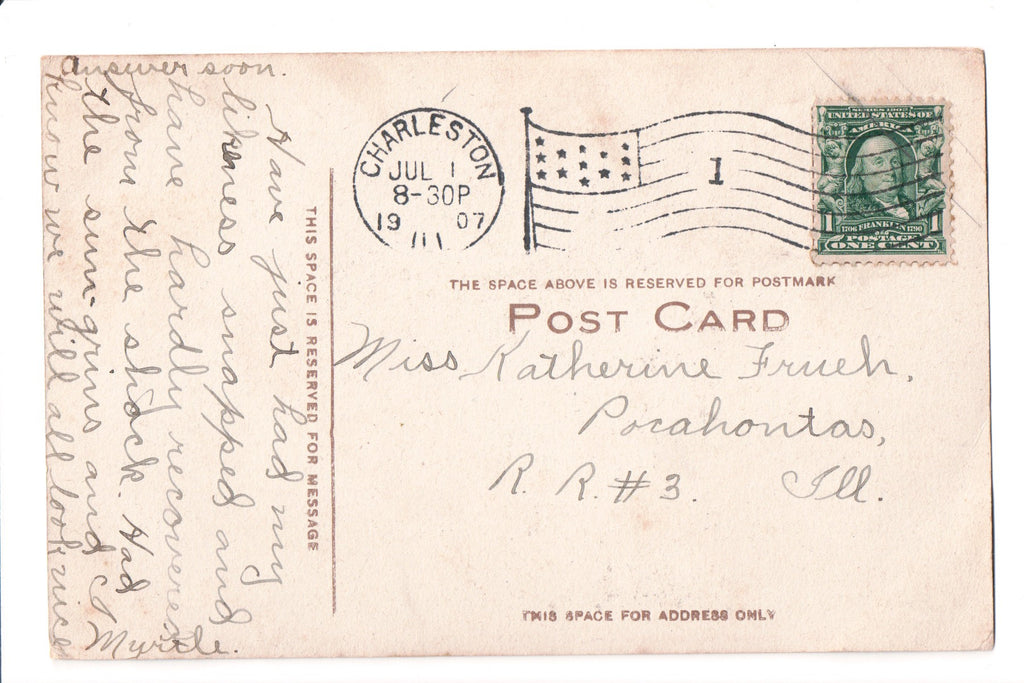 CHARLESTON
JUL 1
8-30P
19 07
ILL
1
SERIES 1902
UNITED STATES OF
AMERICA
1706 FRANKLIN 1790
POSTAGE
1 ONE CENT 1
THE SPACE ABOVE IS RESERVED FOR POSTMARK
POST CARD
Miss Katherine Frueh,
Pocahontas,
R. R. #3. Ill.
THIS SPACE FOR ADDRESS ONLY
THIS SPACE IS RESERVED FOR MESSAGE
Have just had my
likeness snapped and
have hardly recovered
from the shock. Had
the sun-grins and I
know we will all look nice
Answer soon.
Myrtle.